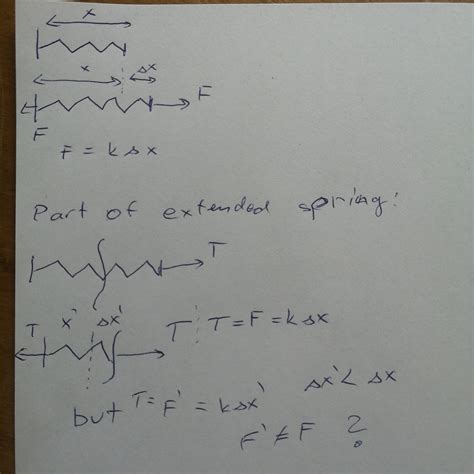 x
x Δx
F
F
F = k Δx
Part of extended spring:
T
T x' Δx' T T = F = k Δx
Δx' < Δx
but T = F' = k Δx'
F' ≠ F ?